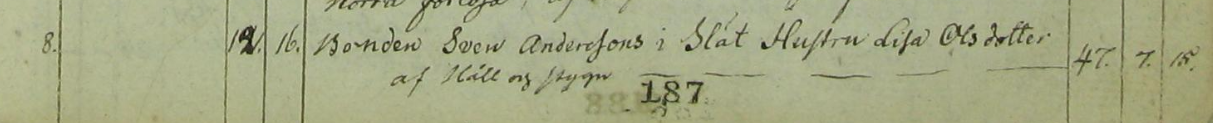 Norra
8. 12. 16. Bonden Sven Anderssons i Slät Hustru Lisa Olsdotter 47. 7. 15.
af Håll och stygn
187